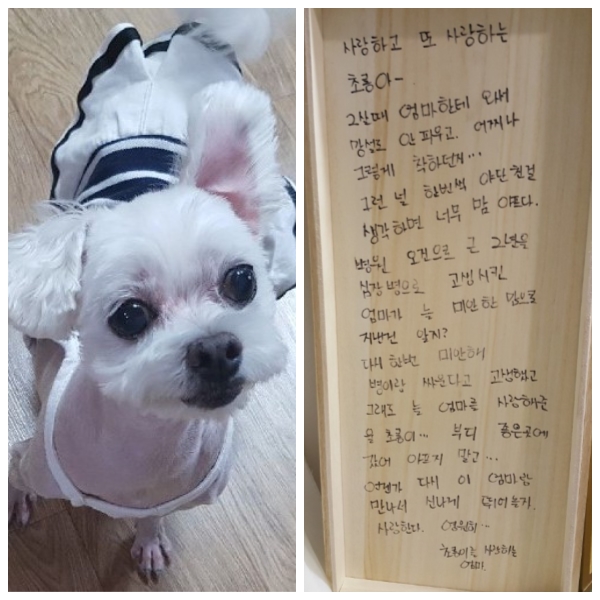 사랑하고 또 사랑하는
초롱아~
2살때 엄마한테 와서
말썽도 안 피우고. 어찌나
그렇게 착하던지...
그런 널 한번씩 야단친걸
생각하면 너무 맘 아프다.
병원 오진으로 근 2년을
심장병으로 고생시킨
엄마가 늘 미안한 맘으로
지냈던건 알지?
다시 한번 미안해
병이랑 싸운다고 고생했고
그래도 늘 엄마를 사랑해준
울 초롱이... 부디 좋은곳에
가서 아프지 말고...
언젠가 다시 이 엄마랑
만나서 신나게 뛰어놀자.
사랑한다. 영원히...
초롱이를 사랑하는
엄마.